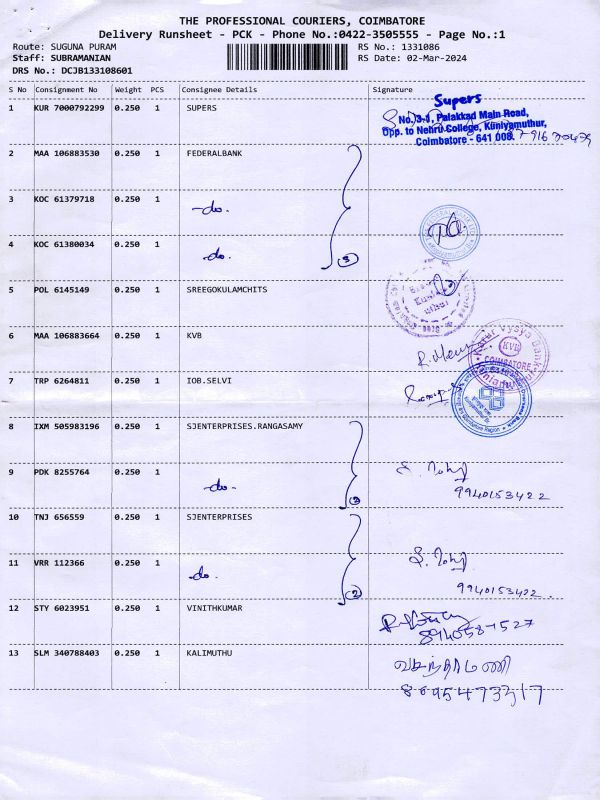 THE PROFESSIONAL COURIERS, COIMBATORE
Delivery Runsheet - PCK - Phone No.:0422-3505555 - Page No.:1
Route: SUGUNA PURAM RS No.: 1331086
Staff: SUBRAMANIAN RS Date: 02-Mar-2024
DRS No.: DCJB133108601
S No Consignment No Weight PCS Consignee Details Signature
1 KUR 7000792299 0.250 1 SUPERS
Supers
No.3-1, Palakkad Main Road,
Opp. to Nehru College, Kuniyamuthur,
Coimbatore - 641 008.
2 MAA 106883530 0.250 1 FEDERALBANK
3 KOC 61379718 0.250 1 -do.
4 KOC 61380034 0.250 1 -do. 3
5 POL 6145149 0.250 1 SREEGOKULAMCHITS
6 MAA 106883664 0.250 1 KVB
Karur Vysya Bank
KVB
COIMBATORE
7 TRP 6264811 0.250 1 IOB.SELVI
8 IXM 505983196 0.250 1 SJENTERPRISES.RANGASAMY
9 PDK 8255764 0.250 1 -do.
9940153422
10 TNJ 656559 0.250 1 SJENTERPRISES
11 VRR 112366 0.250 1 -do. 2
9940153422.
12 STY 6023951 0.250 1 VINITHKUMAR
8940587527
13 SLM 340788403 0.250 1 KALIMUTHU
வசந்தாமணி
8695473317